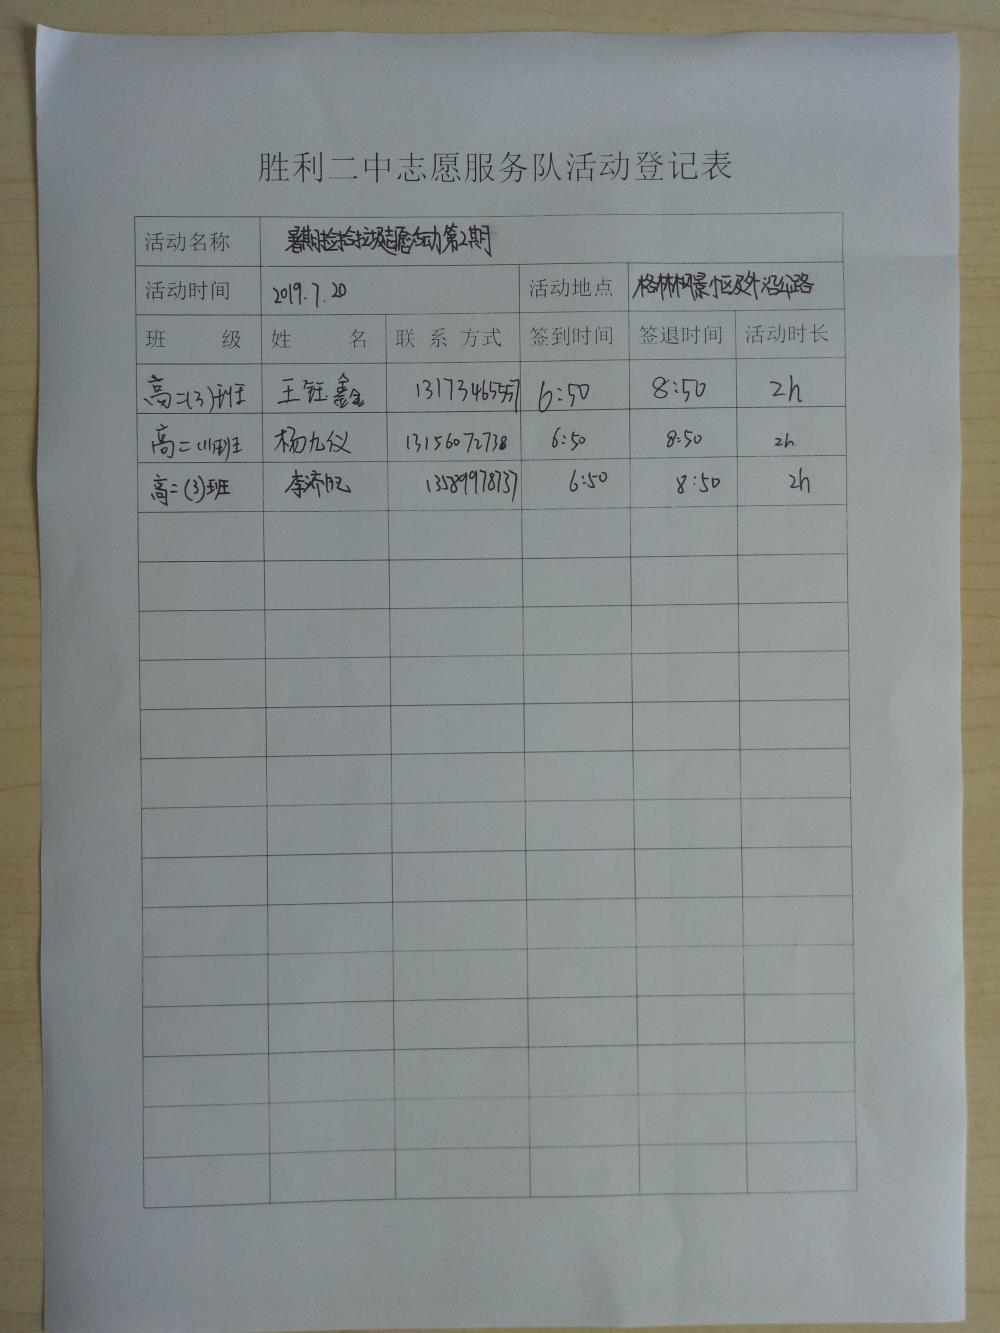 胜利二中志愿服务队活动登记表
活动名称 暑期捡拾垃圾志愿活动第2期
活动时间 2019.7.20 活动地点 格林枫景小区及外沿公路
班 级 姓 名 联系方式 签到时间 签退时间 活动时长
高二(3)班 王钰鑫 6:50 8:50 2h
高二 班 杨九仪 13156072738 6:50 8:50 2h
高二(3)班 李 13589978737 6:50 8:50 2h